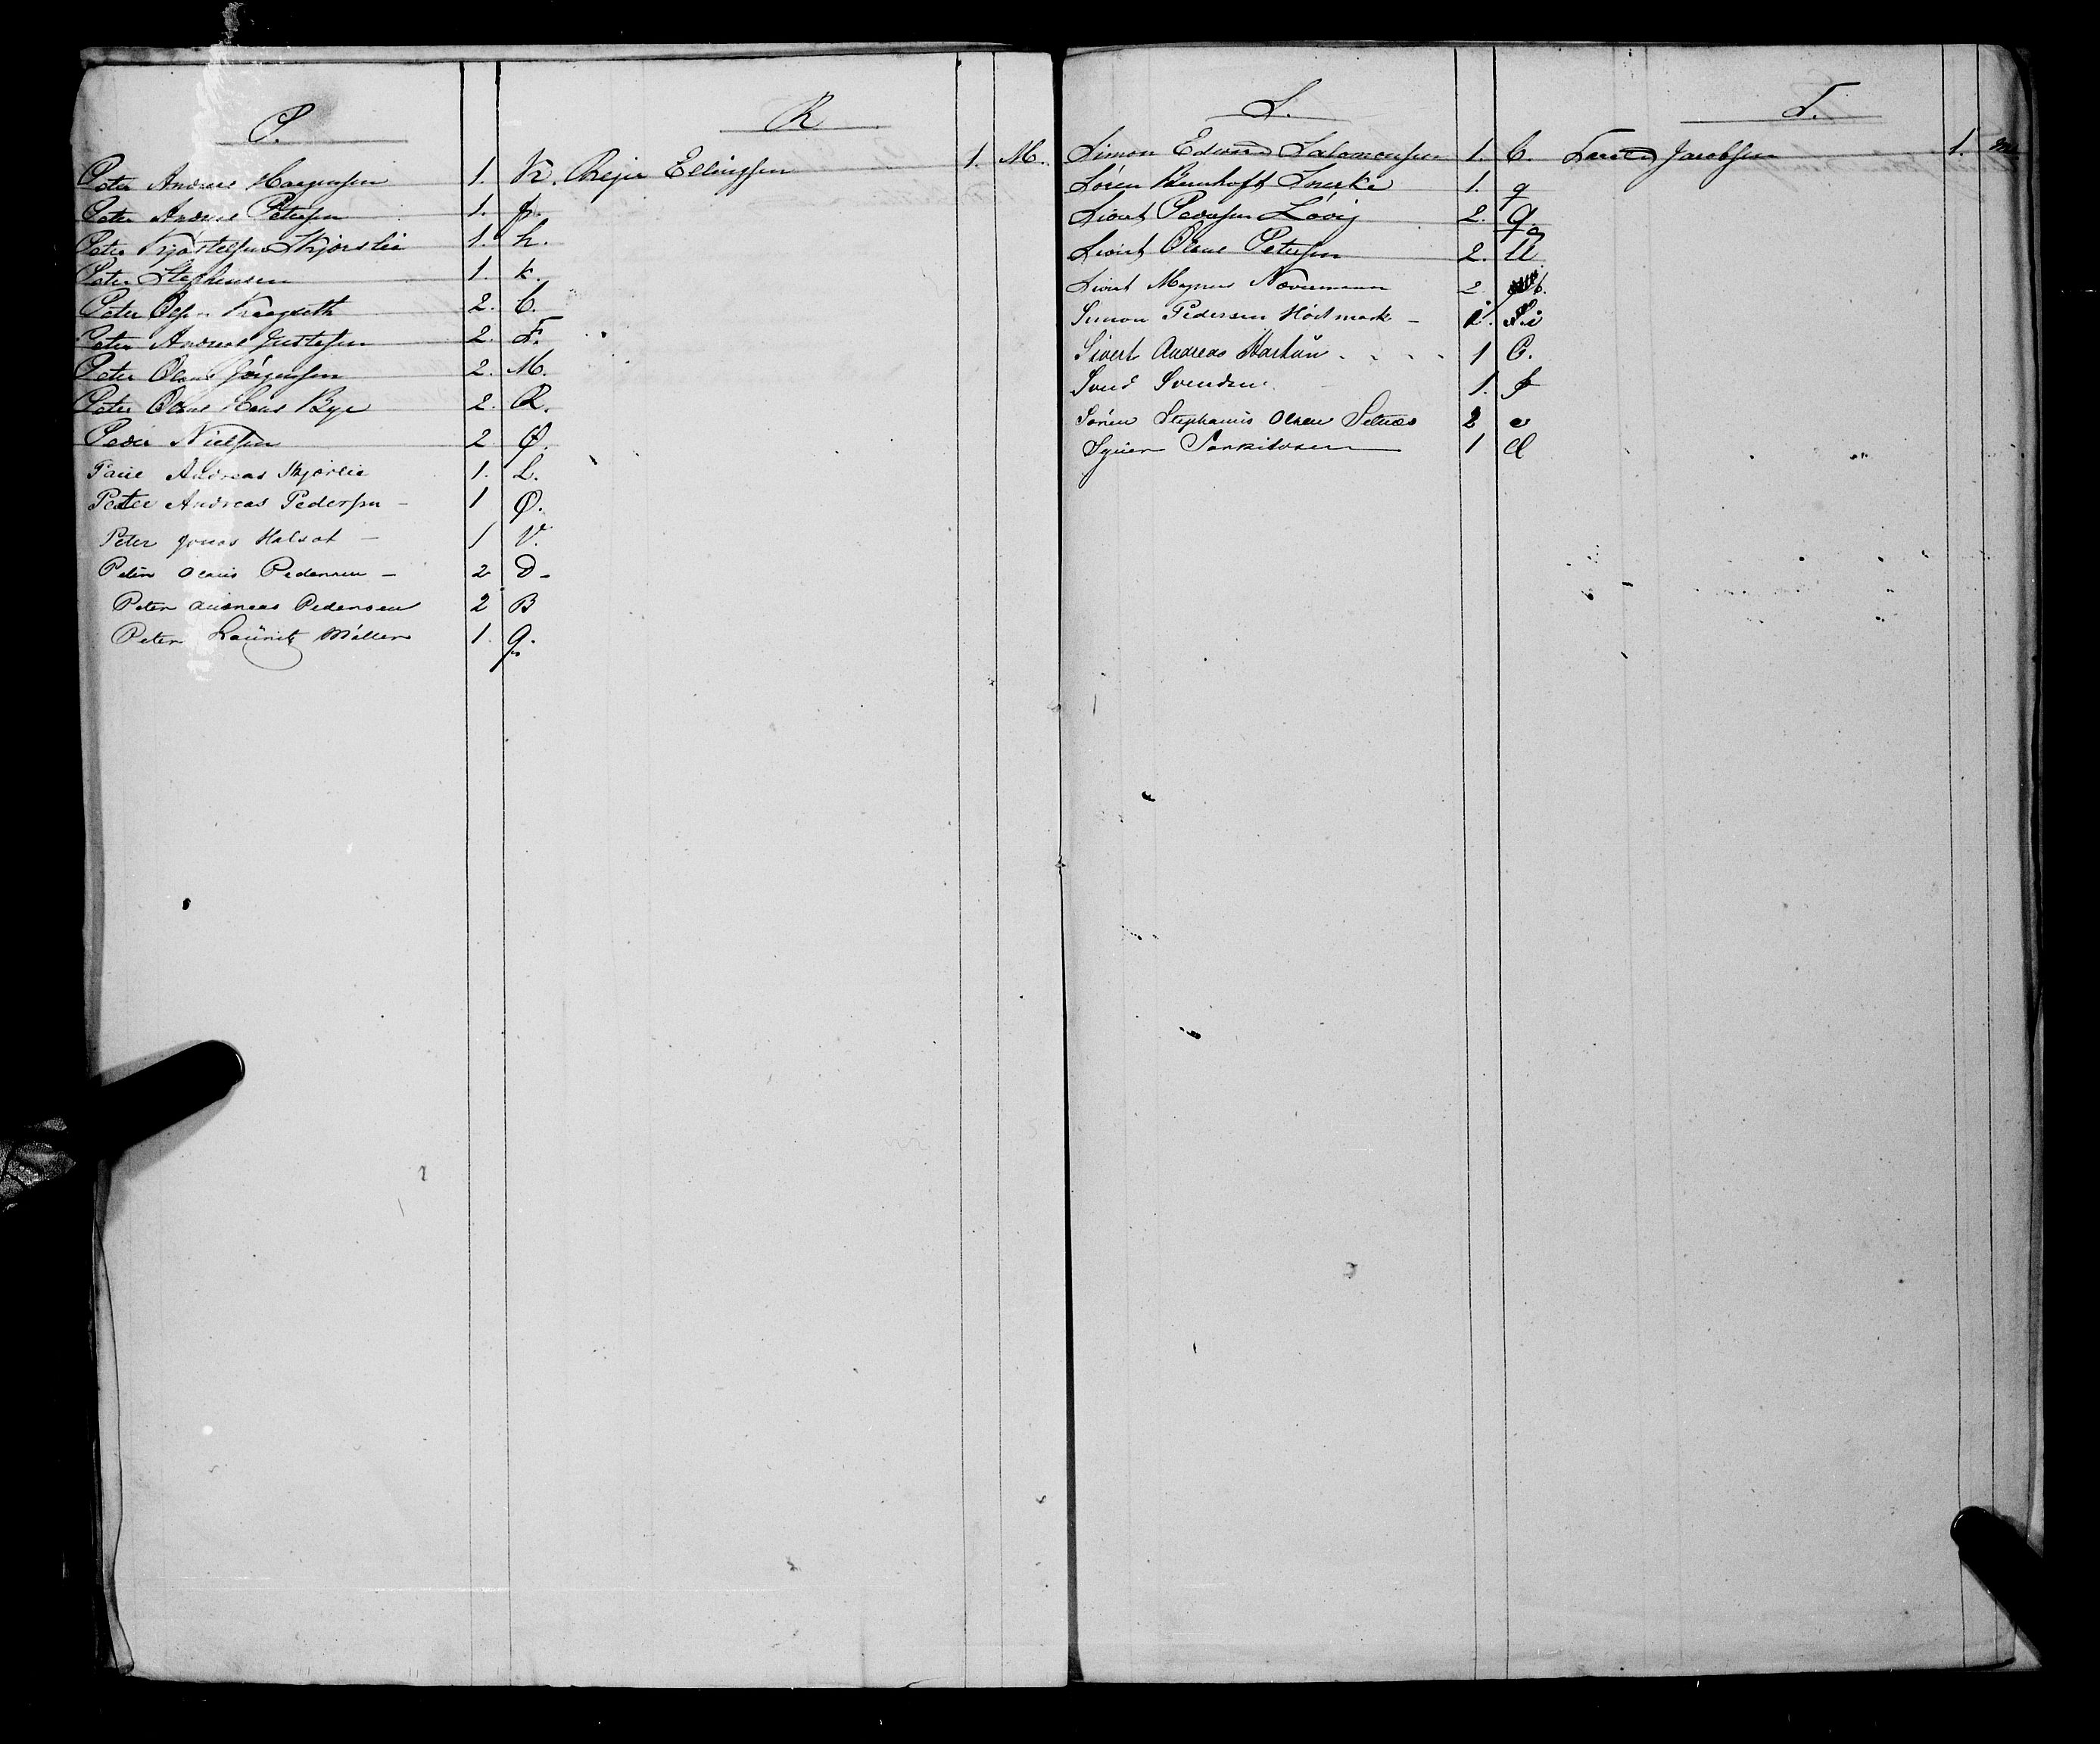 P.
Peter Andreas Haagensen 1. K.
Peter Andreas Petersen 1. p.
Peter Kjøstelsen Skjørlie 1. h.
Peter Stephensen 1. k.
Peter Olsen 2. C.
Peter Andreas Gustafsen 2. F.
Peter Olaus Jørgensen 2. M.
Peter Olaus Hans Bye 2. R.
Peder Nielsen 2 Ø.
Paul Andreas Skjørlie 1. L.
Peter Andreas Pedersen - 1 Ø.
Peter Jonas Halsat - 1 V.
Peter Olaus Pedersen - 2 D-
Peter Andreas Pedersen 2 B
Peter Lauritz Møller 1. q.
R
Rejer Ellingsen 1. M.
S.
Simon Edvard Salomonsen 1. C.
Søren 1. q
Sivert Pedersen Løvig 2. Q
Sivert Olaus Petersen 2. U
Sivert Magnus 2 b.
Simon Pedersen Hostmark - 1. i
Sivert Andreas 1 C.
Svend Svendsen 1. f
Søren Stephanus Olsen Selnæs 2 e
1 d
T.
Jacobsen 1. M